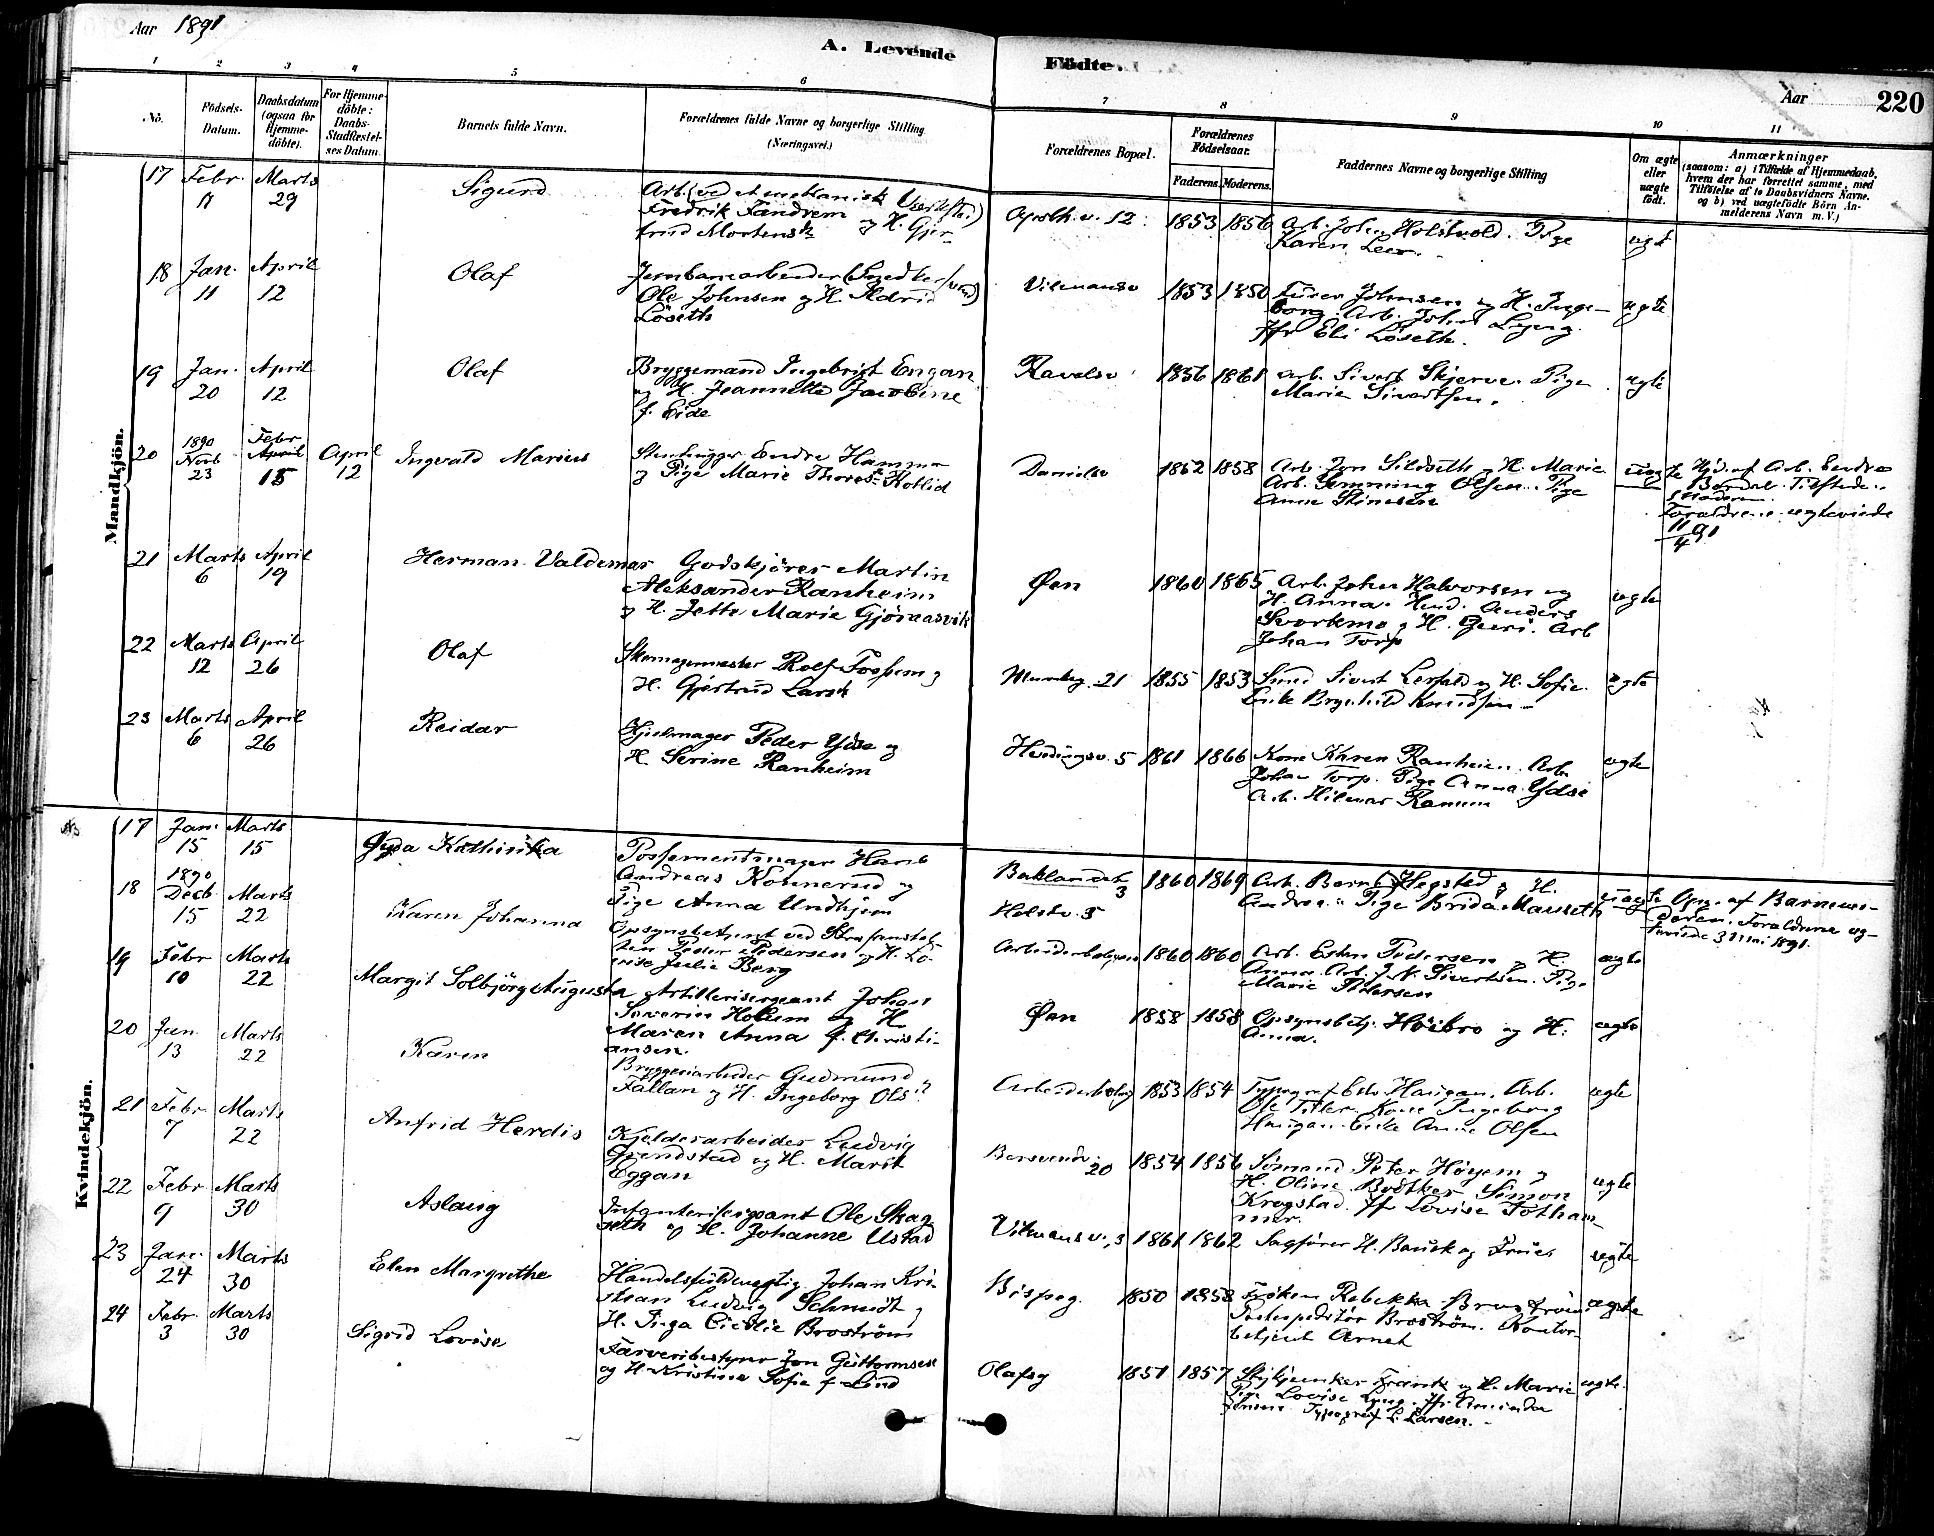 Aar 1891
A. Levende
Födte.
Aar 220
1 2 3 4 5 6 7 8 9 10 11
No.
Födsels-
Datum.
Daabsdatum
(ogsaa for
Hjemme-
döbte).
For Hjemme-
döbte:
Daabs-
Stadfæstel-
ses Datum.
Barnets fulde Navn.
Forældrenes fulde Navne og borgerlige Stilling
(Næringsvei.)
Forældrenes Bopæl.
Forældrenes
Födselsaar.
Faderens. Moderens.
Faddernes Navne og borgerlige Stilling
Om ægte
eller
uægte
födt.
Anmærkninger
(saasom: a) i Tilfælde af Hjemmedaab,
hvem der har forrettet samme, med
Tilföielse af to Daabsvidners Navne.
og b) ved uægtefödte Börn An-
melderens Navn m. V.)
Mandkjön.
17 Febr. 11 Marts 29 Sigurd
Arb. (ved et mekanisk Værksted)
Fredrik Fandrem og H. Gjer-
trud Mortensdr.
Apothv. 12. 1853 1856
Arb. Johan Holstvold. Pige
Karen Leer.
ægt
18 Jan. 11 April 12 Olaf
Jernbanearbeider
Ole Johnsen og H. Ildrid
Löseth
Vikmansv 1853 1850
Johnsen og H. Inge-
borg. Arb. Johan Lyng.
Jfr Eli Löseth.
ægte
19 Jan. 20 April 12 Olaf
Bryggemand Ingebrigt Engan
og H. Jeannette Jacobine
f. Eide
Ravelsv 1856 1861
Arb. Sivert Skjerve. Pige
Marie Sivertsen.
ægte
20 1890 Novb 23 Febr 15 April 12 Ingvald Marius
Stenhugger Endre Hammer
og Pige Marie Thores- Kotlid
Danielsv 1862 1858
Arb. Jon Sildseth og H. Marie
Arb. Olsen. Pige
Anna Stinesen
uægte
Hjd. af Arb. Endre
Bardal. Tilstede.
Moderen.
Forældrene ægteviede
11/4 91
21 Marts 6 April 19 Herman Valdemar
Godskjörer Martin
Aleksander Ranheim
og H. Jette Marie Gjöraasvik
Øen 1860 1865
Arb. Johan Halvorsen og
H. Anna. Anders
Svorkmo og H. Guri. Arb
Johan Torp
ægte
22 Marts 12 April 26 Olaf
Skomagermester Rolf Fossem og
H. Gjertrud Larsdr
Munkeg. 21 1855 1853
Smed Sivert Lerfald og H. Sofie.
Enke Brynhild Knudsen
ægte
23 Marts 6 April 26 Reidar
Hjulmager Peder Ydse og
H. Serine Ranheim
1861 1866
Kone Karen Ranheim. Arb.
Johan Torp. Pige Anna Ydse
Arb. Hilmar Ramm
ægte
Kvindekjön.
17 Jan. 15 Marts 15 Gyda Kathinka
Possementmager Hans
Andreas Kobberud og
Pige Anna Undhjem
Baklandet 3 1860 1869
Arb. Bernt Hegstad og H.
Andrea. Pige Brida Mauseth
uægte
Opg. af Barnemo-
deren. Forældrene æg-
teviede 3 Mai 1891.
18 1890 Decb 15 Marts 22 Karen Johanna
Opsynsbetjent ved Strafanstal-
ten Peder Pedersen og H. Lo-
vise Julie Berg
Arbeiderboligen 1860 1860
Arb. Esten Pedersen og H.
Anna. Arb. Sivertsen. Pige
Marie Petersen
ægte
19 Febr 10 Marts 22 Margit Solbjörg Augusta
Artillerisergeant Johan
Severin Holum og H.
Maren Anna f. Christi-
ansen.
Øen 1858 1858
Opsynsbetj. Höibro og H.
Anna.
ægte
20 Jan 13 Marts 22 Karen
Bryggeriarbeider Gudmund
Fallan og H. Ingeborg Olsdr
Arbeiderbolig 1853 1854
Typograf Haugan. Arb.
Ole Kone Ingeborg
Haugan. Enke Anne Olsen
ægte
21 Febr 7 Marts 22 Anfrid Herdis
Kjelderarbeider Ludvig
Grendstad og H. Marit
Eggan
20 1854 1856
Sömand Peter Höyem og
H. Oline. Bödtker Simon
Krogstad. Jfr Lovise Totham-
mer.
ægte
22 Febr 9 Marts 30 Aslaug
Infanterisergeant Ole Skag-
seth og H. Johanne Ustad
Vikmansv. 3 1861 1862
Sagförer H. Bauck og Frue
ægte
23 Jan. 24 Marts 30 Elen Margrethe
Handelsfuldmægtig Johan Kri-
stian Ludvig Schmidt og
H. Inga Cicilie Broström
Bispeg. 1850 1858
Fröken Rebekka Broström
Postexpeditör Broström. Kontor-
betjent Arnet
ægte
24 Febr. 3 Marts 30 Sigrid Lovise
Farveribestyrer Jon Guttormsen
og H. Kristine Sofie f. Lind
Olafsg 1851 1857
Frants og H. Marie
Pige Lovise Lyng. Jfr
Jensen. Typograf L. Larsen.
ægte.